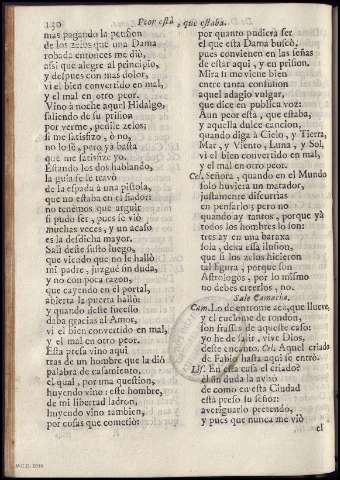 130 Peor està, que estaba.
mas pagando la pension
de los zelos que una Dama
robada entonces me diò,
assi que alegre al principio,
y despues con mas dolor,
vi el bien convertido en mal,
y el mal en otro peor.
Vino à noche aquel Hidalgo,
saliendo de su prision
por verme, pedile zelos;
si me satisfizo, ò no,
no lo sè, pero yà basta
que me satisfize yo.
Estando los dos hablando,
la guia se travò
de la espada à una pistola,
que no estaba en el fiador:
no tenèmos que arguir
si pudo ser, pues se viò
muchas veces, y un acaso
es la desdicha mayor.
Salì deste susto luego,
que vicado que no le hallò
mi padre, juzguè sin duda,
y no con poca razon,
que cayendo en el portal,
abierta la puerta hallò:
y quando deste sucesso
daba gracias al Amor,
vi el bien convertido en mal,
y el mal en otro peor.
Esta presa vino aqui
tras de un hombre que la diò
palabra de casamiento,
el qual, por una question,
huyendo vino: este hombre,
de mi libertad ladron,
huyendo vino tambien,
por cosas que cometiò:
por quanto pudiera ser
el que esta Dama buscò,
pues convienen en las señas
de estar aqui, y en prision.
Mira si moviene bien
entre tanta confusion
aquel adagio vulgar,
que dice en publica voz:
Aun peor està, que estaba,
y aquella dulce cancion,
quando diga à Cielo, y Tierra,
Mar, y Viento, Luna, y Sol,
vi el bien convertido en mal,
y el mal en otro peor.
Cel. Señora, quando en el Mundo
solo huviera un matador,
justamente discurrias
en pensarlo; pero no
quando ay tantos, porque yà
todos los hombres lo son:
tres ay en una baraxa
sola, dexa essa ilusion,
que si los zelos hicieron
tal figura, porque son
Astrologos, por lo mismo
no debes creerlos, no.
Sale Camacho.
Cam. Lo de entrome acà, que llueve,
y el enclome de rondon,
son frasses de aqueste caso:
yo he de salir, vive Dios,
deste encanto. Cel. Aquel criado
de Fabio hasta aqui se entrò.
Lis. En essa casa el criado?
el sin duda la avisò
de como en esta Ciudad
està preso su señor:
averiguarlo pretendo,
y pues que nunca me viò
el